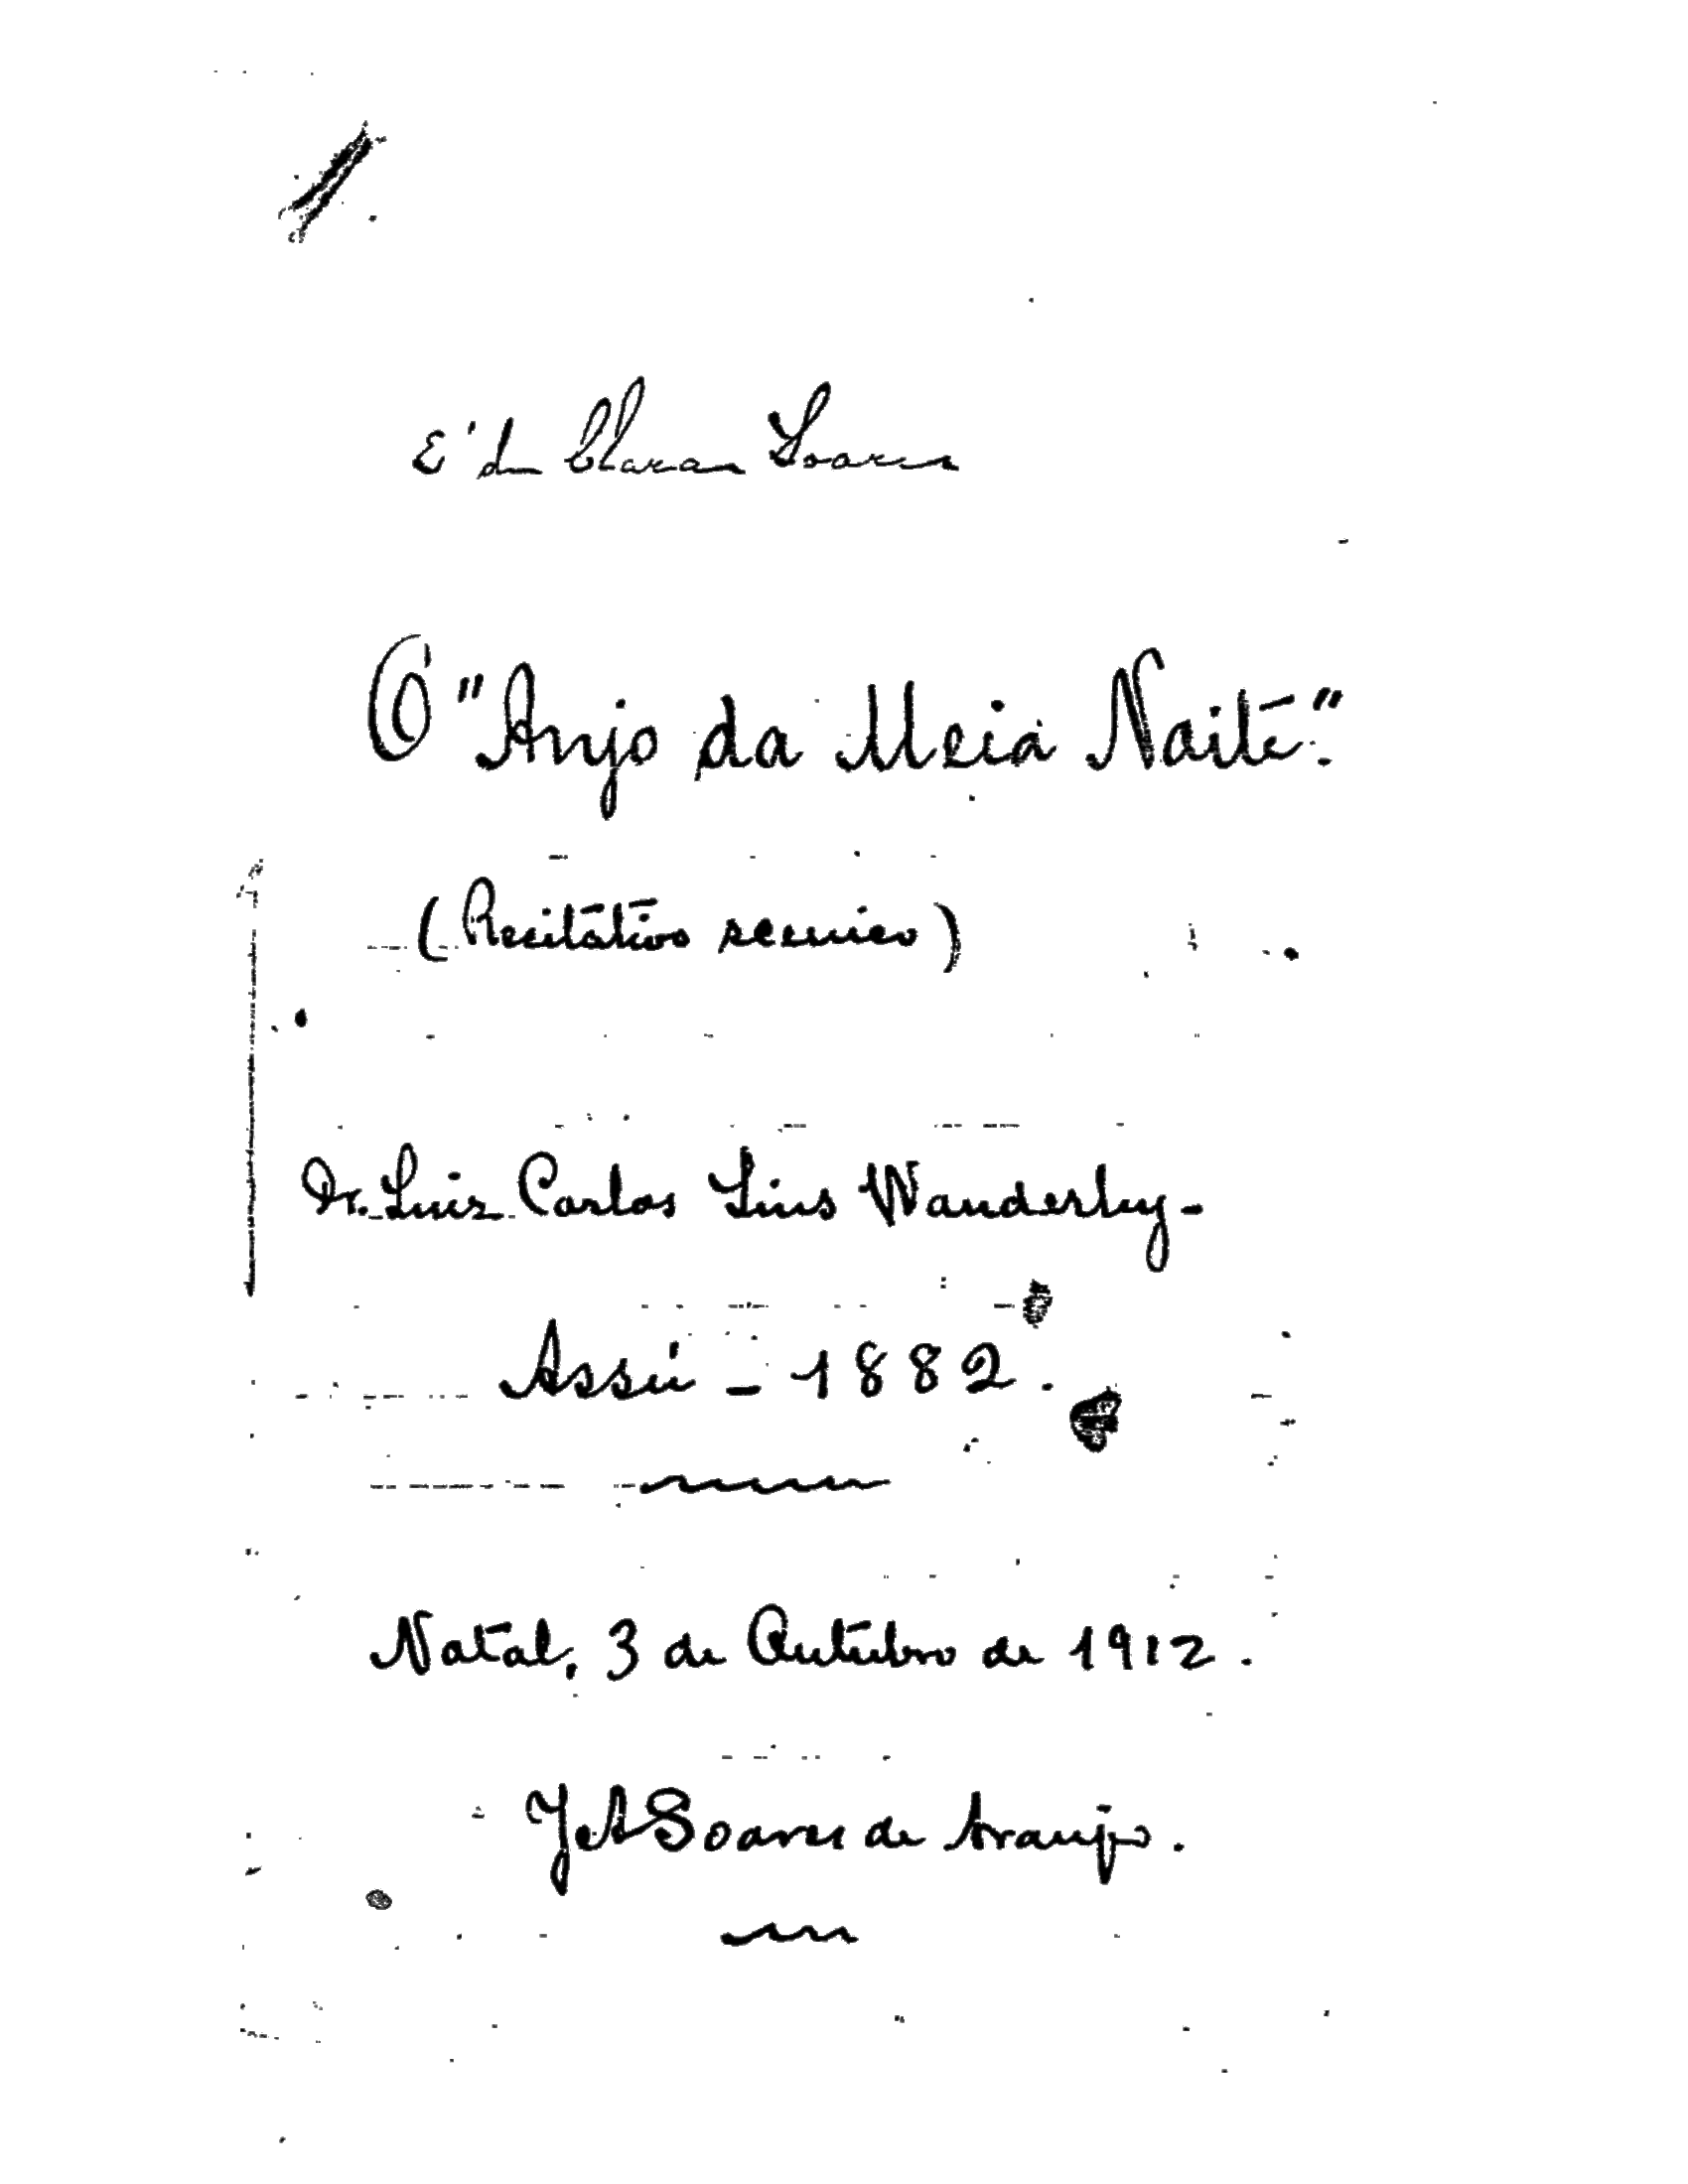 E' de Clara Soares
O "Anjo da Meia Noite".
(Recitativo scenico)
Dr. Luiz Carlos Lins Wanderley -
Assú - 1882.
Natal, 3 de Outubro de 1912.
JASoares de Araujo.